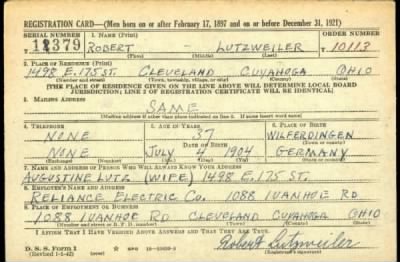 REGISTRATION CARD—(Men born on or after February 17, 1897 and on or before December 31, 1921)
SERIAL NUMBER 1. NAME (Print) ORDER NUMBER
12379 ROBERT - LUTZWEILER 10113
(First) (Middle) (Last)
2. PLACE OF RESIDENCE (Print)
1498 E. 175 ST. CLEVELAND CUYAHOGA OHIO
(Number and street) (Town, township, village, or city) (County) (State)
[THE PLACE OF RESIDENCE GIVEN ON THE LINE ABOVE WILL DETERMINE LOCAL BOARD
JURISDICTION; LINE 2 OF REGISTRATION CERTIFICATE WILL BE IDENTICAL]
3. MAILING ADDRESS
SAME
(Mailing address if other than place indicated on line 2. If same insert word same)
4. TELEPHONE 5. AGE IN YEARS 6. PLACE OF BIRTH
NONE 37 WILFERDINGEN
DATE OF BIRTH (Town or county)
NONE JULY 4 1904 GERMANY
(Exchange) (Number) (Mo.) (Day) (Yr.) (State or country)
7. NAME AND ADDRESS OF PERSON WHO WILL ALWAYS KNOW YOUR ADDRESS
AUGUSTINE LUTZ (WIFE) 1498 E. 175 ST.
8. EMPLOYER'S NAME AND ADDRESS
RELIANCE ELECTRIC CO. 1088 IVANHOE RD
9. PLACE OF EMPLOYMENT OR BUSINESS
1088 IVANHOE RD CLEVELAND CUYAHOGA OHIO
(Number and street or R. F. D. number) (Town) (County) (State)
I AFFIRM THAT I HAVE VERIFIED ABOVE ANSWERS AND THAT THEY ARE TRUE.
D. S. S. Form 1
(Revised 1-1-42) (over) Robert Lutzweiler
(Registrant's signature)